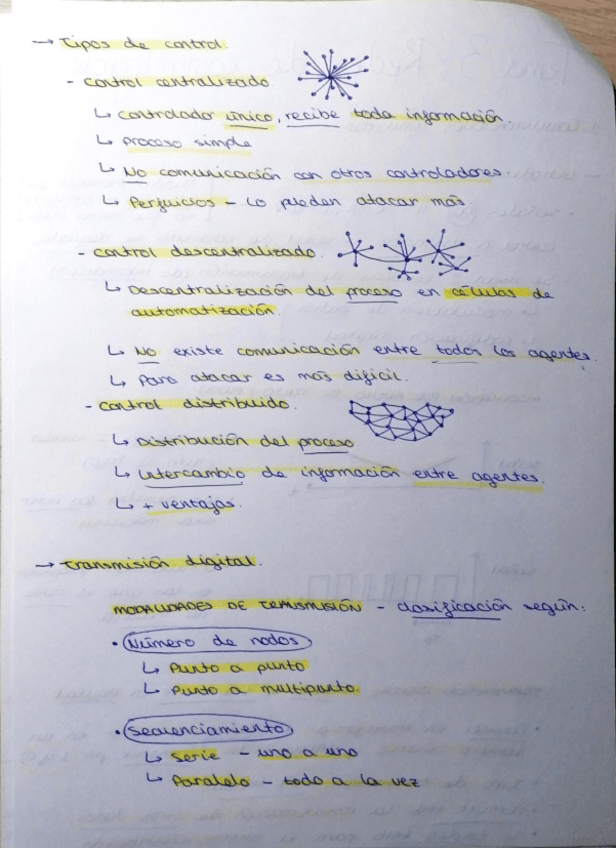 → Tipos de control.
- Control centralizado
↳ controlador único, recibe toda información.
↳ proceso simple
↳ No comunicación con otros controladores.
↳ Perjuicios - Lo pueden atacar más.
- Control descentralizado.
↳ Descentralización del proceso en células de
automatización.
↳ No existe comunicación entre todos los agentes.
↳ Para atacar es más difícil.
- Control distribuido.
↳ Distribución del proceso
↳ Intercambio de información entre agentes.
↳ + ventajas.
→ Transmisión digital.
MODALIDADES DE TRANSMISIÓN - clasificación según:
• Número de nodos
↳ Punto a punto
↳ Punto a multipunto.
• Secuenciamiento
↳ Serie - uno a uno
↳ Paralelo - todo a la vez